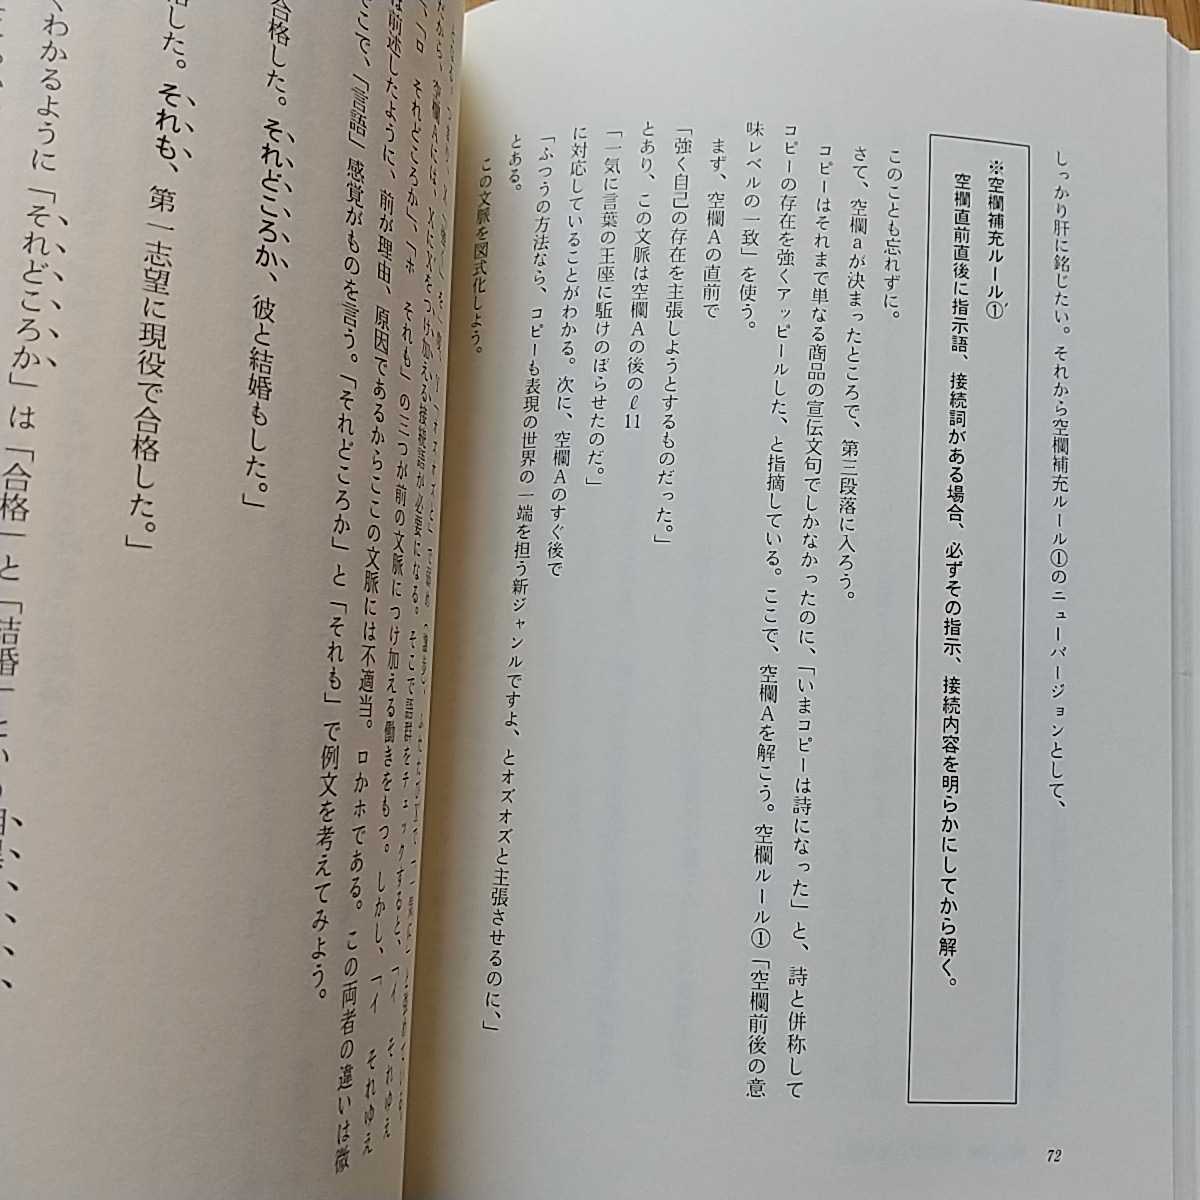 しっかり肝に銘じたい。それから空欄補充ルール①のニューバージョンとして、
※空欄補充ルール①′
空欄直前直後に指示語、接続詞がある場合、必ずその指示、接続内容を明らかにしてから解く。
このことも忘れずに。
さて、空欄aが決まったところで、第三段落に入ろう。
コピーはそれまで単なる商品の宣伝文句でしかなかったのに、「いまコピーは詩になった」と、詩と併称して
コピーの存在を強くアッピールした、と指摘している。ここで、空欄Aを解こう。空欄ルール①「空欄前後の意
味レベルの一致」を使う。
まず、空欄Aの直前で
「強く自己の存在を主張しようとするものだった。」
とあり、この文脈は空欄Aの後のℓ11
「一気に言葉の王座に駈けのぼらせたのだ。」
に対応していることがわかる。次に、空欄Aのすぐ後で
「ふつうの方法なら、コピーも表現の世界の一端を担う新ジャンルですよ、とオズオズと主張させるのに、」
とある。
この文脈を図式化しよう。
72
から、空欄Aには、XにXをつけ加える接続語が必要になる。そこで語群をチェックすると、「イ それゆえ
「ロ それどころか」、「ホ それも」の三つが前の文脈につけ加える働きをもつ。しかし、「イ それゆえ
は前述したように、前が理由、原因であるからここの文脈には不適当。ロかホである。この両者の違いは微
こで、「言語」感覚がものを言う。「それどころか」と「それも」で例文を考えてみよう。
合格した。それどころか、彼と結婚もした。」
した。それも、第一志望に現役で合格した。」
くわかるように「それどころか」は「合格」と「結婚」という